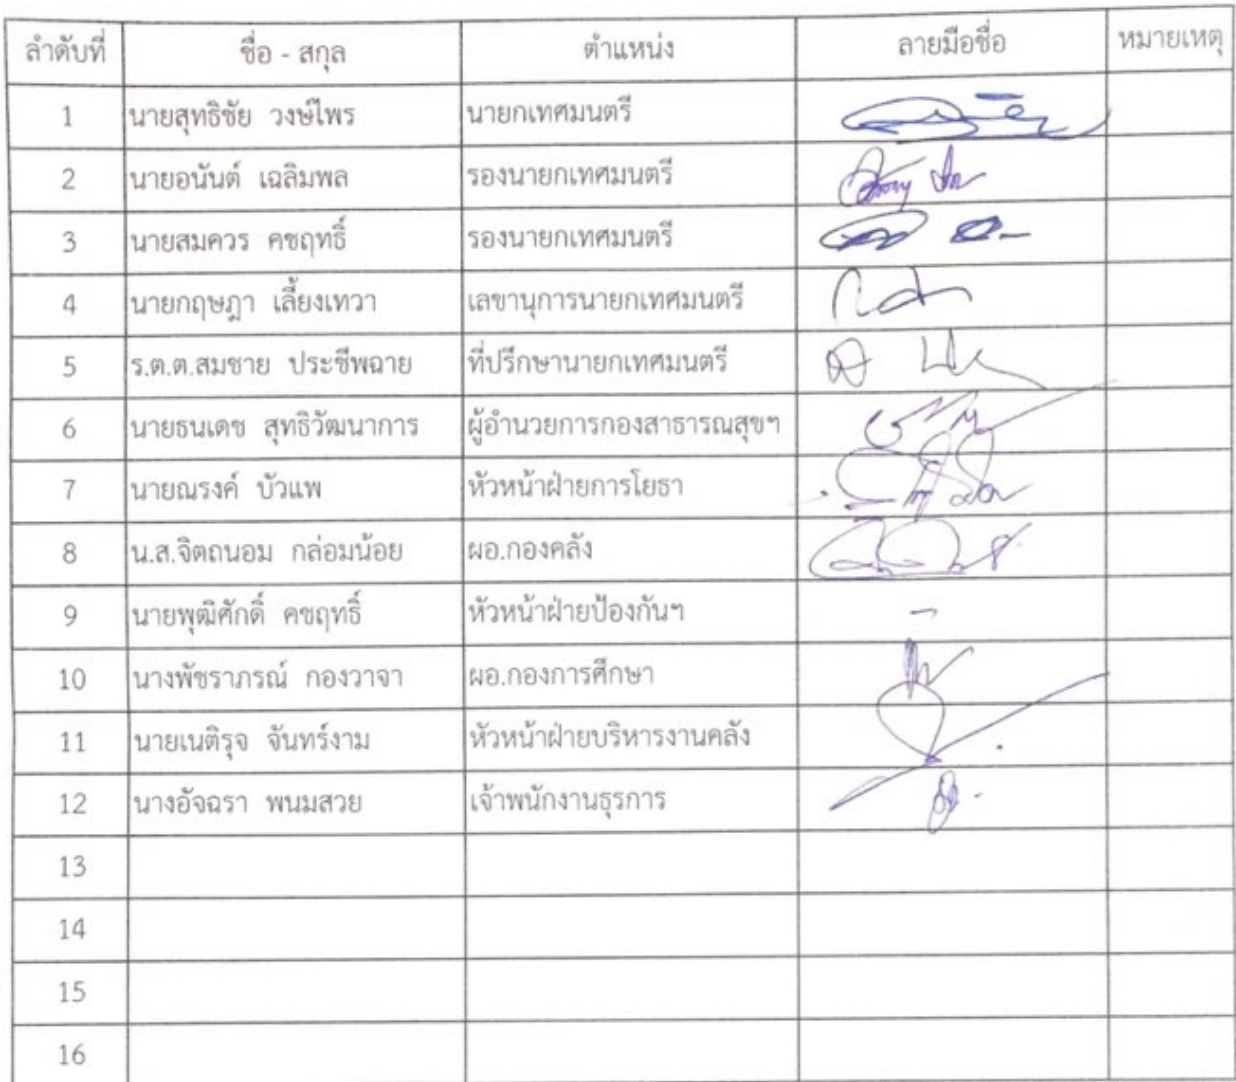 ลำดับที่ ชื่อ - สกุล ตำแหน่ง ลายมือชื่อ หมายเหตุ
1 นายสุทธิชัย วงษ์ไพร นายกเทศมนตรี
2 นายอนันต์ เฉลิมพล รองนายกเทศมนตรี
3 นายสมควร คชฤทธิ์ รองนายกเทศมนตรี
4 นายกฤษฎา เลี้ยงเทวา เลขานุการนายกเทศมนตรี
5 ร.ต.ต.สมชาย ประชีพฉาย ที่ปรึกษานายกเทศมนตรี
6 นายธนเดช สุทธิวัฒนาการ ผู้อำนวยการกองสาธารณสุขฯ
7 นายณรงค์ บัวแพ หัวหน้าฝ่ายการโยธา
8 น.ส.จิตถนอม กล่อมน้อย ผอ.กองคลัง
9 นายพุฒิศักดิ์ คชฤทธิ์ หัวหน้าฝ่ายป้องกันฯ -
10 นางพัชราภรณ์ กองวาจา ผอ.กองการศึกษา
11 นายเนติรุจ จันทร์งาม หัวหน้าฝ่ายบริหารงานคลัง
12 นางอัจฉรา พนมสวย เจ้าพนักงานธุรการ
13
14
15
16